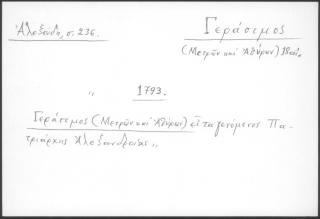 Γεράσιμος
Ἀλεξούδη, σ. 236.
(Μετρῶν καὶ Ἀθύρων)
„ 1793.
Γεράσιμος (Μετρῶν καὶ Ἀθύρων) εἶτα γενόμενος Πα-
τριάρχης Ἀλεξανδρείας „